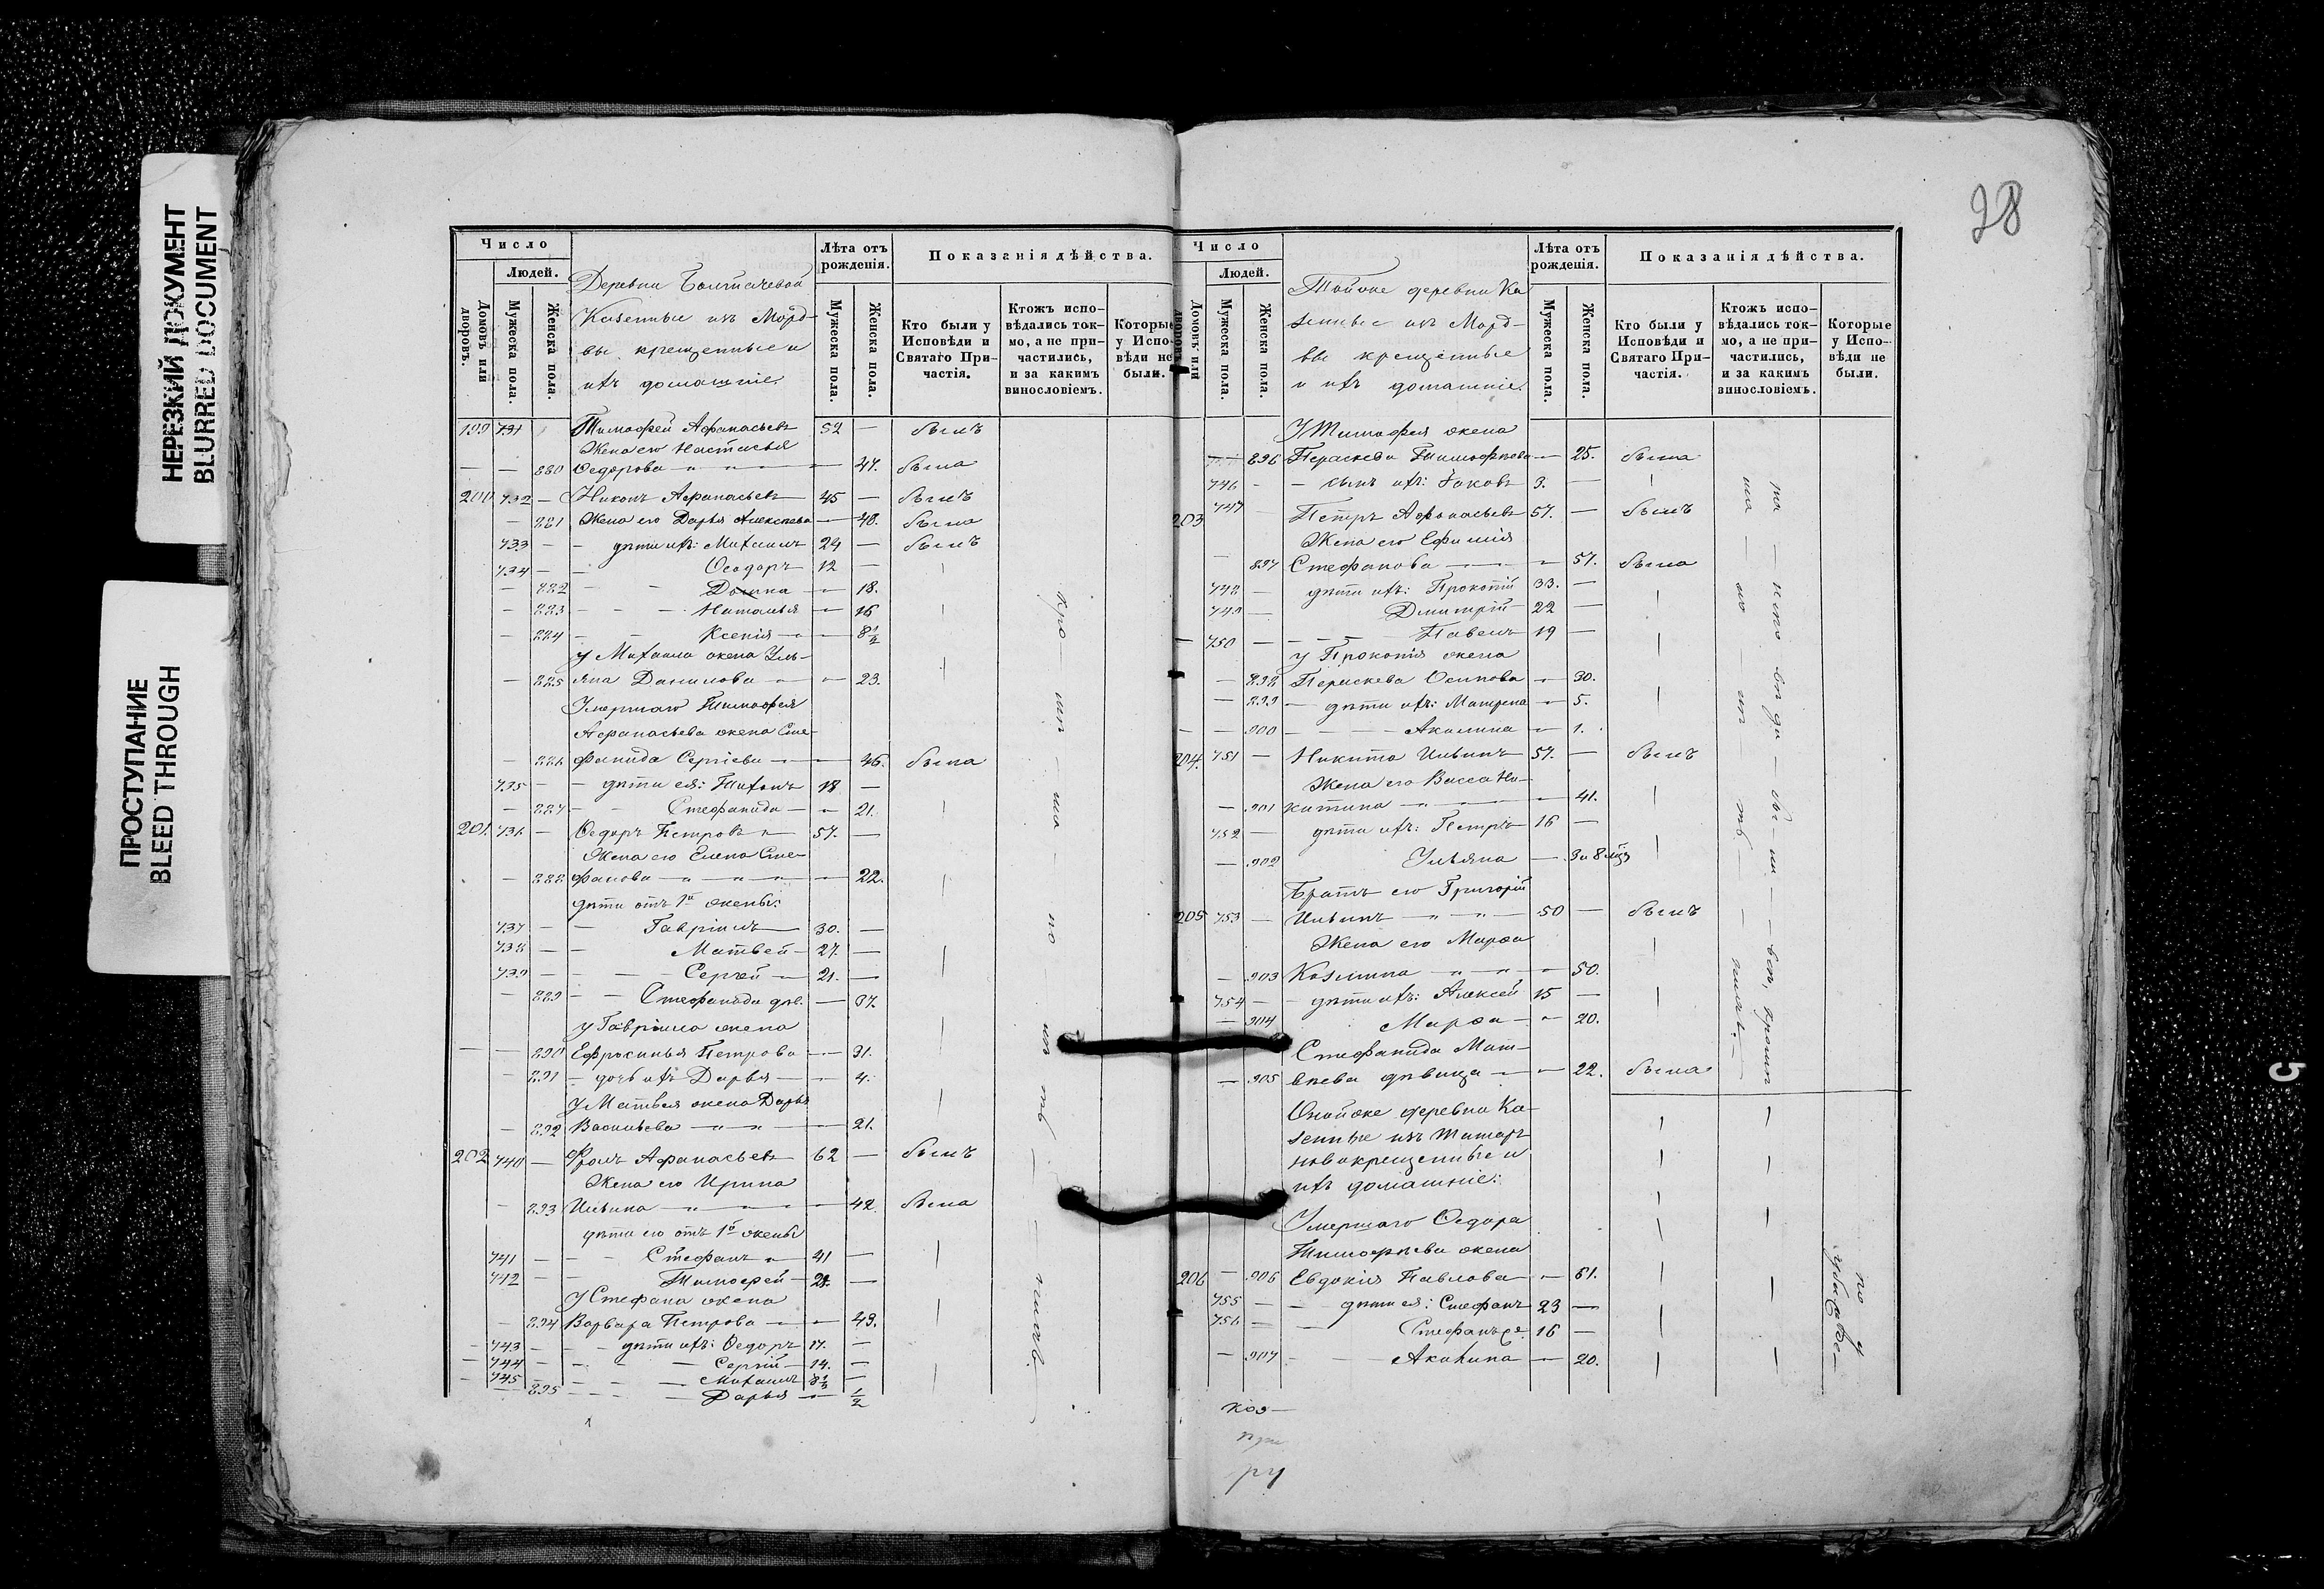 НЕРЕЗКИЙ ДОКУМЕНТ
BLURRED DOCUMENT
ПРОСТУПАНИЕ
BLEED THROUGH
Число
Людей.
Домовъ или дворовъ.
Мужеска пола.
Женска пола.
Деревни
Казенные изъ Морд-
вы крещенные и
ихъ домашніе.
Лѣта отъ рожденія.
Мужеска пола.
Женска пола.
Показанія дѣйства.
Кто были у Исповѣди и Святаго Причастія.
Ктожъ исповѣдались токмо, а не причастились, и за какимъ винословіемъ.
Которые у Исповѣди не были.
199 731 Тимофей Афанасьевъ 52 — былъ
Жена его Настасья
— — 880 Ѳедорова — 47. была
200 732 — Никонъ Афанасьевъ 45 — былъ
— 881 Жена его Дарья Алексеева — 48. была
733 — — дѣти ихъ: Михаилъ 24 — былъ
734 — — Ѳеодоръ 12 —
— 882 — — — 18.
— 883 — — Наталья — 16
— 884 — — Ксенія — 8½
у Михаила жена Уль-
— 885 яна Данилова — 23.
Умершаго Тимофея
Афанасьева жена Сте-
— 886 фанида Сергіева — 46. была
735 — — дѣти ея: Тихонъ 18 —
— 887 — — Стефанида — 21.
201. 736 — Ѳедоръ Петровъ 57. —
Жена его Елена Сте-
— 888 фанова — 22.
дѣти отъ 1й жены:
737 — — Гавріилъ 30. —
738 — — Матвей — 27. —
739 — — Сергей — 21. —
— 889 — — Стефанида — 37.
у Гавріила жена
— — 890 Ефросинья Петрова — 31.
— 891 — дочь ихъ Дарья — 4.
у Матвея жена Дарья
— 892 Васильева — 21.
202 740 — Фролъ Афанасьевъ 62 — былъ
Жена его Ирина
— 893 Ильина — 42. была
дѣти его отъ 1й жены
741 — — Стефанъ 41 —
742 — — Тимофей — 28. —
у Стефана жена
— 894 Варвара Петрова — 43.
— 743 — — дѣти ихъ: Ѳедоръ 17. —
— 744 — — Сергій — 14. —
— 745 — — Михаилъ 8½ —
— 895 — — Дарья — ½
28
Число
Людей.
Домовъ или дворовъ.
Мужеска пола.
Женска пола.
Тойже деревни Ка
зенные изъ Морд-
вы крещенные
и ихъ домашніе.
Лѣта отъ рожденія.
Мужеска пола.
Женска пола.
Показанія дѣйства.
Кто были у Исповѣди и Святаго Причастія.
Ктожъ исповѣдались токмо, а не причастились, и за какимъ винословіемъ.
Которые у Исповѣди не были.
У Тимофея жена
— 896 Пераскева Тимофѣева — 25. была
746 — — сынъ ихъ: Іаковъ 3. —
203 747 — Петръ Афонасьевъ 57. — былъ
Жена его Ефимія
— 897 Стефанова — 57. была
748 — дѣти ихъ: Прокопій 33. —
749 — Дмитрій 22 —
— 750 — — Павелъ 19 —
у Прокопія жена
— 898 Пераскева Осипова — 30.
— 899 — дѣти ихъ: Матрена — 5.
— — 900 — — Акилина — 1.
204. 751 — Никита Ильинъ 57. — былъ
Жена его Васса Ни-
— 901 китина — 41.
752 — дѣти ихъ: Петръ 16 —
— 902 Ульяна — 3 и 8 мцъ
Братъ его Григорій
205 753 — Ильинъ — 50 — былъ
Жена его Марѳа
— 903 Козмина — 50.
754 — — дѣти ихъ: Алексей 15 —
— 904 Марѳа — 20.
Стефанида Мат-
— 905 вѣева дѣвица — 22. была
Оной же деревни Ка-
зенные изъ Татаръ
новокрещенные и
ихъ домашніе:
Умершаго Ѳедора
Тимофѣева жена
206 — 906 Евдокія Павлова — 61.
755 — — дѣти ея: Стефанъ 23 —
756 — — Стефанъ 2й 16 —
— 907 — — Акилина — 20.
5